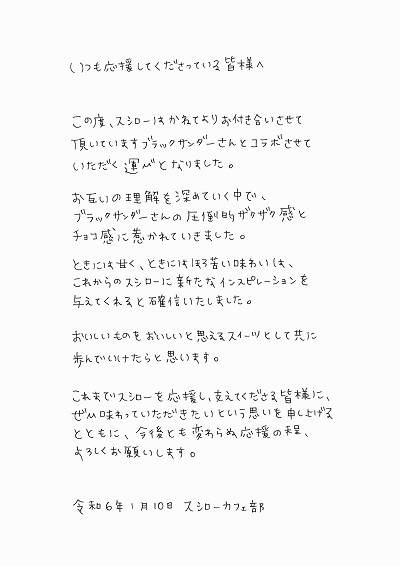 いつも応援してくださっている皆様へ
この度、スシローはかねてよりお付き合いさせて
頂いていますブラックサンダーさんとコラボさせて
いただく運びとなりました。
お互いの理解を深めていく中で、
ブラックサンダーさんの圧倒的ザクザク感と
チョコ感に惹かれていきました。
ときには甘く、ときにはほろ苦い味わいは、
これからのスシローに新たなインスピレーションを
与えてくれると確信いたしました。
おいしいものをおいしいと思えるスイーツとして共に
歩んでいけたらと思います。
これまでスシローを応援し、支えてくださる皆様に、
ぜひ味わっていただきたいという思いを申し上げる
とともに、今後とも変わらぬ応援の程、
よろしくお願いします。
令和6年1月10日 スシローカフェ部